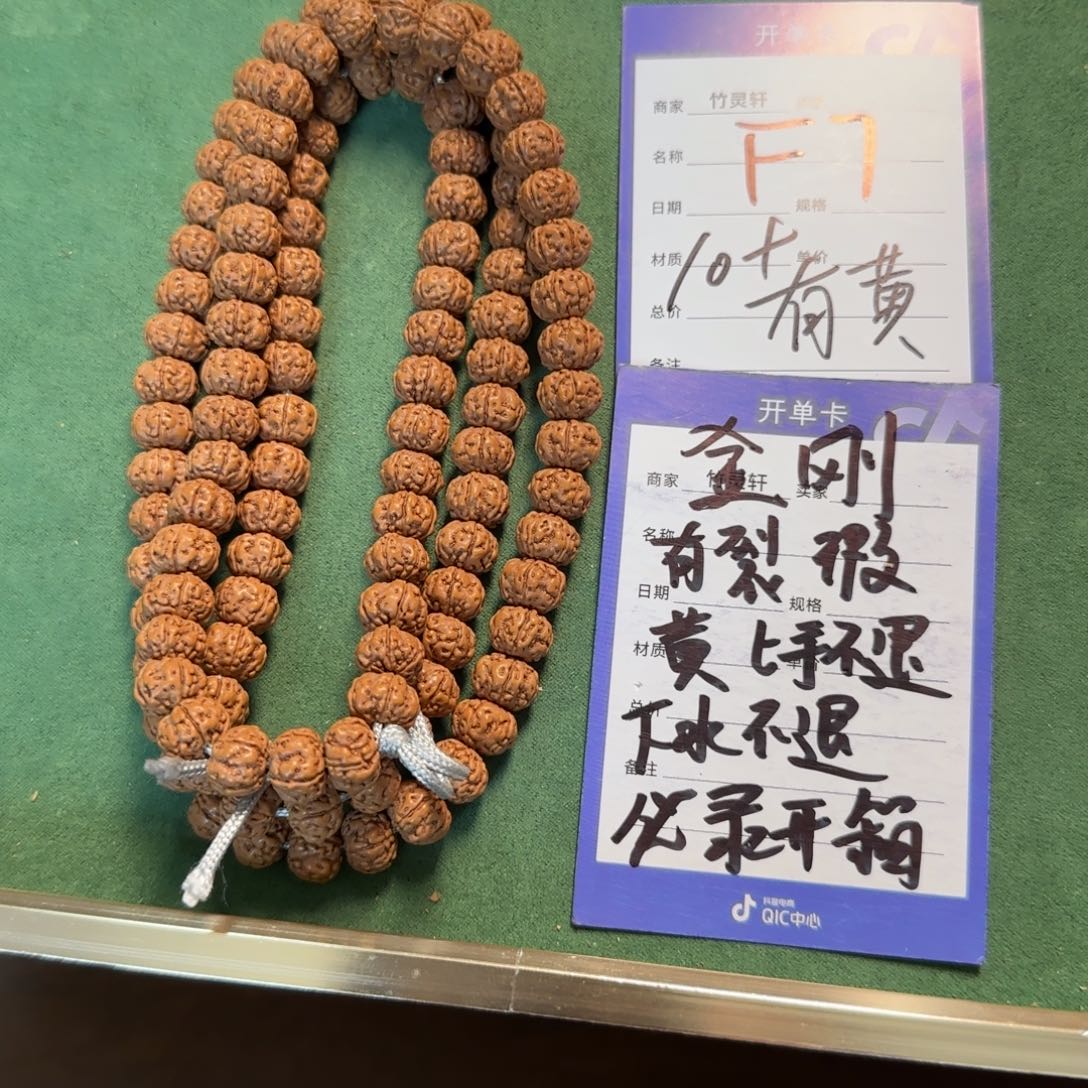 开单卡
商家 竹灵轩
名称 F7
日期 规格
材质 单价
10+
有黄
总价
备注
开单卡
金刚
商家 竹灵轩 买家
名称
有裂 瑕
日期 规格
黄 上手不退
材质 单价
总价
下水不退
备注
必录开箱
抖音电商
QIC中心